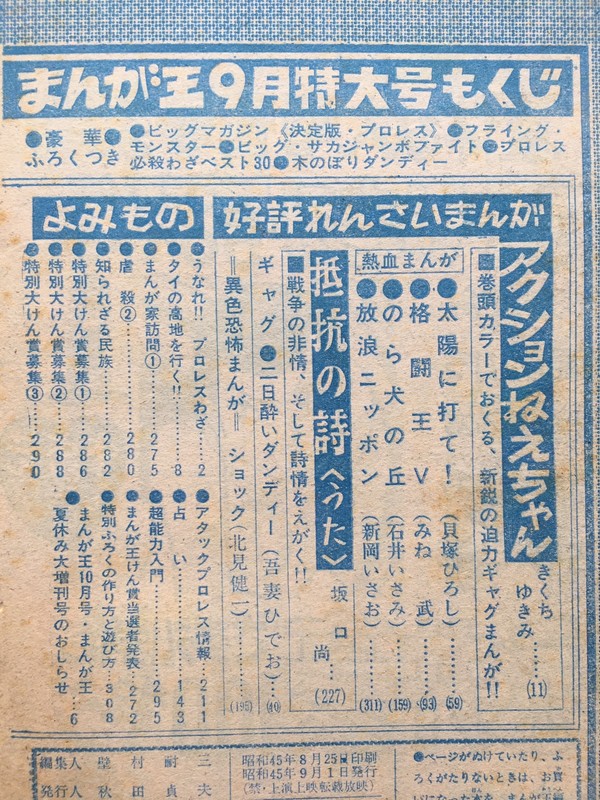 まんが王9月特大号もくじ
●豪華●
ふろくつき
●ビッグマガジン《決定版・プロレス》●フライング・
モンスター●ビッグ・サカジャンボファイト●プロレス
必殺わざベスト30●木のぼりダンディー
好評れんさいまんが
アクションねえちゃん
きくち
ゆきみ……(11)
■巻頭カラーでおくる、新鋭の迫力ギャグまんが!!
熱血まんが
●太陽に打て!(貝塚ひろし)……(59)
●格闘王V(みね武)……(93)
●のら犬の丘(石井いさみ)……(159)
●放浪ニッポン(新岡いさお)……(311)
抵抗の詩〈うた〉
坂口尚…(227)
■戦争の非情、そして詩情をえがく!!
ギャグ●二日酔いダンディー(吾妻ひでお)…(40)
＝異色恐怖まんが＝ショック(北見健二)…(195)
よみもの
●うなれ!! プロレスわざ……2
●タイの高地を行く!!……8
●まんが家訪問①……275
●虐殺②……280
●知られざる民族……282
●特別大けん賞募集①……286
●特別大けん賞募集②……288
●特別大けん賞募集③……290
●アタックプロレス情報……211
●占い……143
●超能力入門……295
●まんが王けん賞当選者発表……272
●特別ふろくの作り方と遊び方…308
●まんが王10月号・まんが王
夏休み大増刊号のおしらせ…6
編集人 壁村耐三
発行人 秋田貞夫
昭和45年8月25日印刷
昭和45年9月1日発行
(禁・上演上映転載放映)
●ページがぬけていたり、ふ
ろくがたりないときは、お買